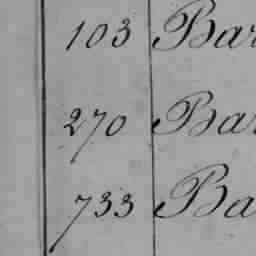 103 Bar
270 Bar
733 Ba